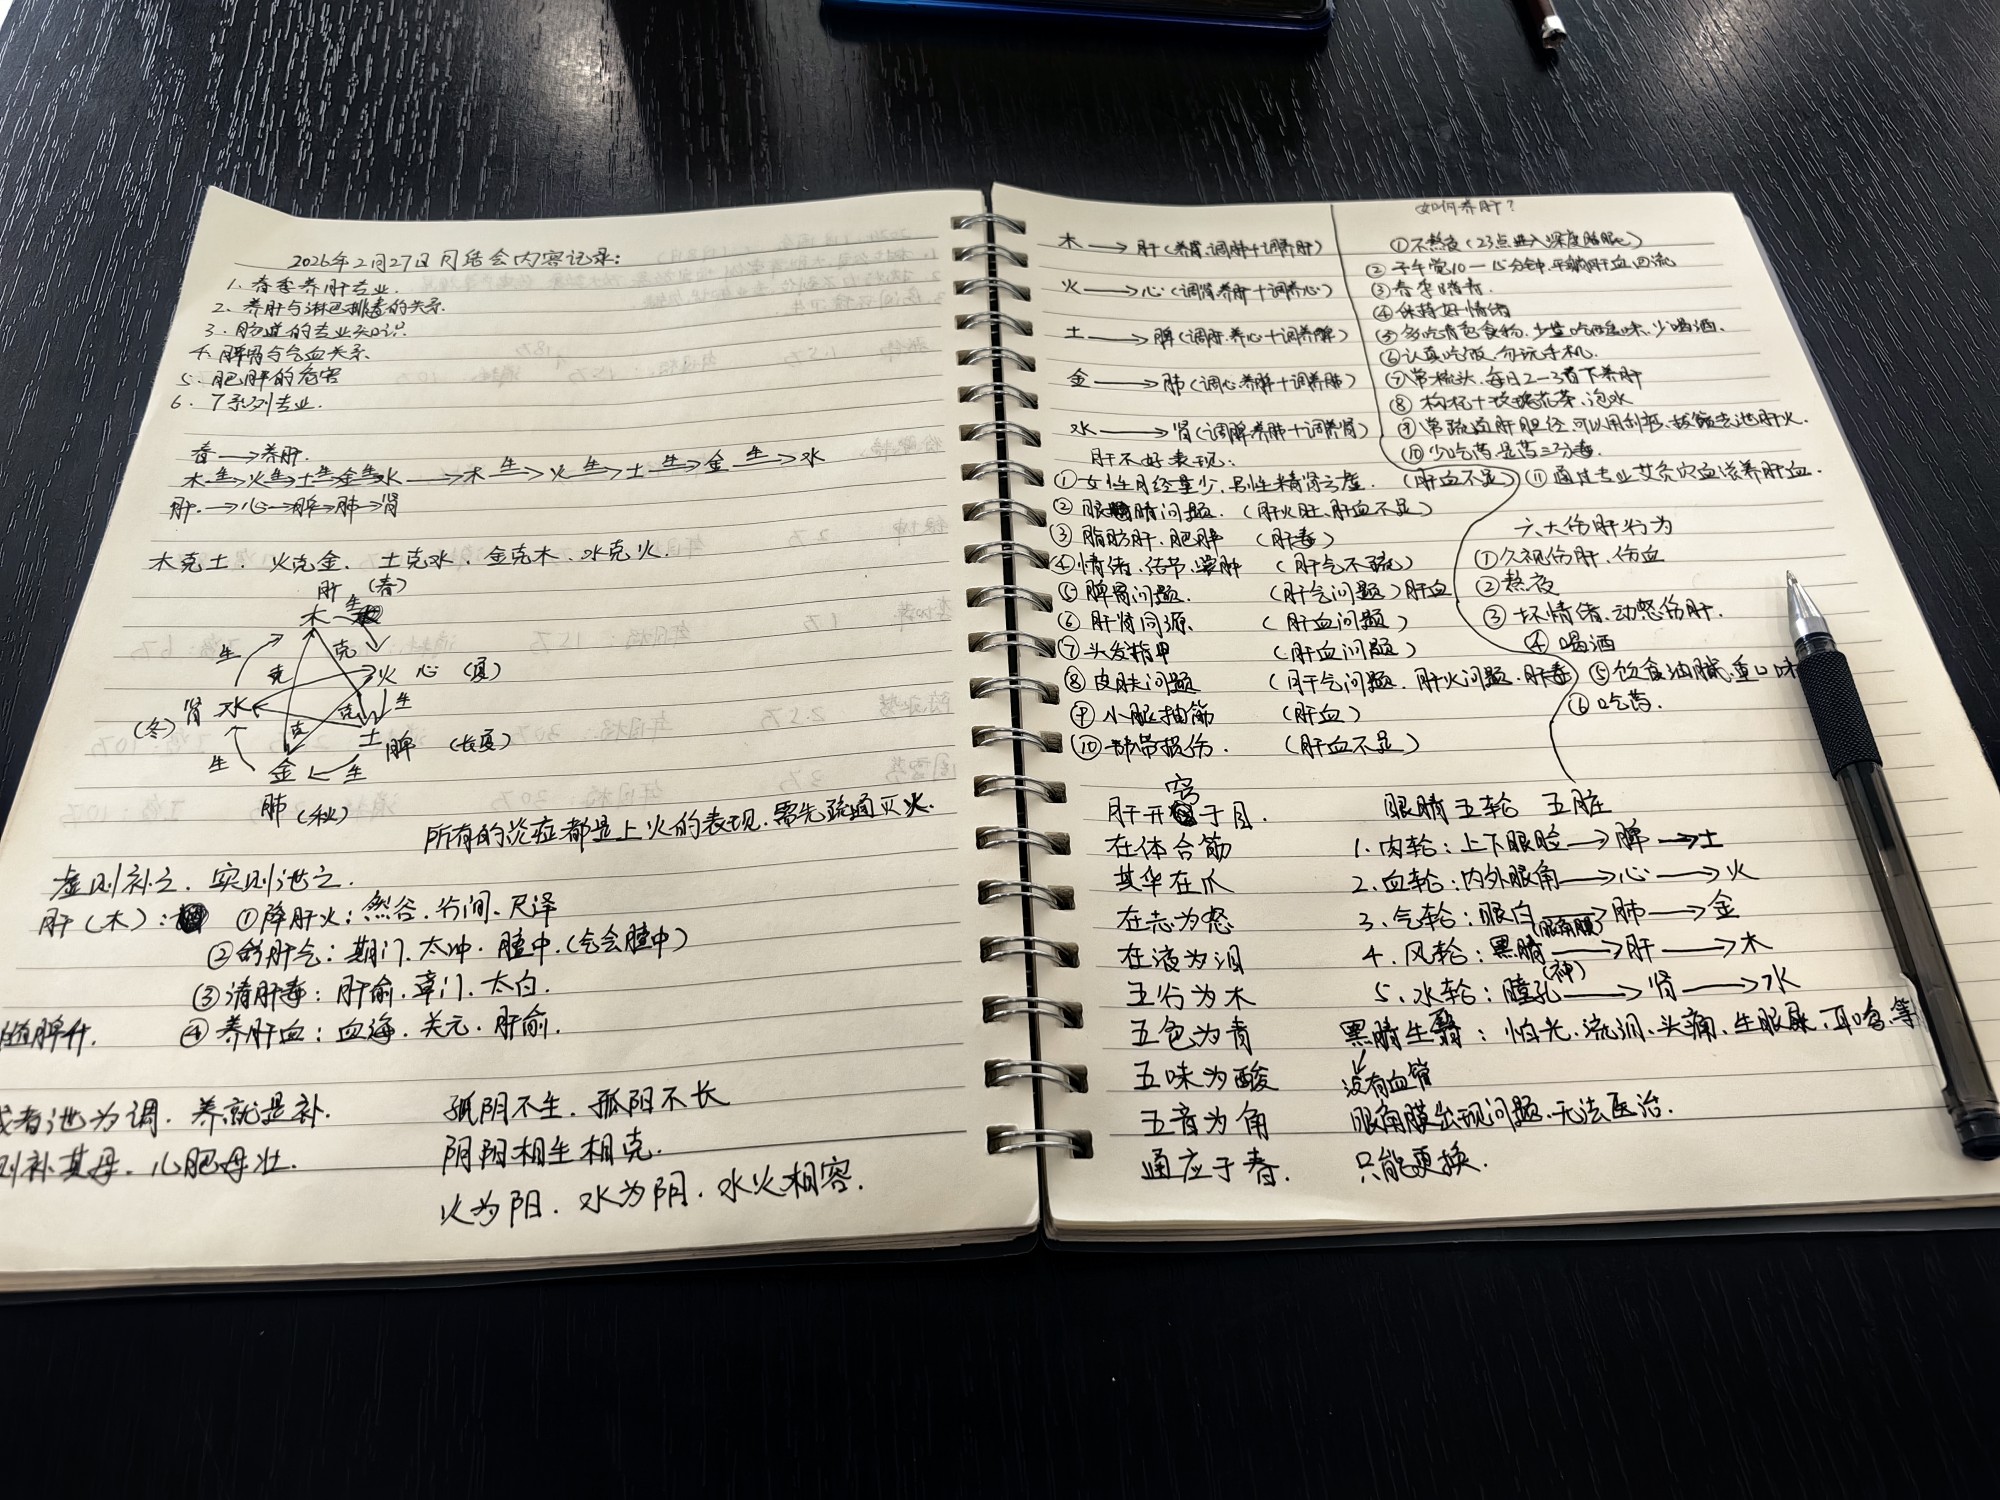 2026年2月27日月结会内容记录:
1. 春季养肝专业.
2. 养肝与淋巴排毒的关系.
3. 肠道的专业知识.
4. 脾胃与气血关系
5. 肥胖的危害
6. 7系列专业.
春→养肝.
木生→火生→土生→金生→水→木生→火生→土生→金生→水
肝.→心→脾→肺→肾
木克土. 火克金. 土克水. 金克木. 水克火.
肝 (春)
木 生
生 克 克
火 心 (夏)
(冬) 肾 水 克 生
克 土 脾 (长夏)
生 金 生
肺 (秋)
所有的炎症都是上火的表现.需先疏通灭火.
虚则补之. 实则泄之.
肝(木): ①降肝火: 然谷. 行间. 尺泽
②舒肝气: 期门. 太冲. 膻中.(气会膻中)
③清肝毒: 肝俞. 章门. 太白.
随脾升. ④养肝血: 血海. 关元. 肝俞.
或者泄为调. 养就是补.
则补其母. 儿肥母壮.
孤阴不生. 孤阳不长
阴阳相生相克.
火为阳. 水为阴. 水火相容.
木→肝(养肾.调肺+调养肝)
火→心(调肾养肝+调养心)
土→脾(调肝.养心+调养脾)
金→肺(调心养脾+调养肺)
水→肾(调脾养肺+调养肾)
肝不好表现:
①女性月经量少. 男性精肾亏虚. (肝血不足)
②眼睛问题. (肝火旺、肝血不足)
③脂肪肝. 肥胖 (肝毒)
④情绪. 结节. 囊肿 (肝气不疏)
⑤脾胃问题. (肝气问题)肝血
⑥肝肾同源. (肝血问题)
⑦头发指甲 (肝血问题)
⑧皮肤问题 (肝气问题. 肝火问题. 肝毒)
⑨小腿抽筋 (肝血)
⑩韧带损伤. (肝血不足)
如何养肝?
①不熬夜(23点进入深度睡眠)
②子午觉10一15分钟.平躺肝血回流
③春季踏青.
④保持好情绪
⑤多吃青色食物. 少吃酸味. 少喝酒.
⑥认真吃饭. 勿玩手机.
⑦常梳头. 每日2-3百下养肝
⑧枸杞+玫瑰花茶. 泡水
⑨常疏通肝胆经.可以用刮痧.拔罐去泄肝火.
⑩少吃药 是药三分毒.
⑪通过专业艾灸穴血滋养肝血.
六大伤肝行为
①久视伤肝. 伤血
②熬夜
③坏情绪.动怒伤肝.
④喝酒
⑤饮食油腻.重口味
⑥吃药.
肝开窍于目.
在体合筋
其华在爪
在志为怒
在液为泪
五行为木
五色为青
五味为酸
五音为角
通应于春.
眼睛五轮 五脏
1. 肉轮: 上下眼睑→脾→土
2. 血轮: 内外眼角→心→火
3. 气轮: 眼白(眼角膜)→肺→金
4. 风轮: 黑睛→肝→木
5. 水轮: 瞳孔(神)→肾→水
黑睛生翳: 怕光. 流泪. 头痛. 生眼屎. 耳鸣.等
没有血管
眼角膜出现问题.无法医治.
只能更换.